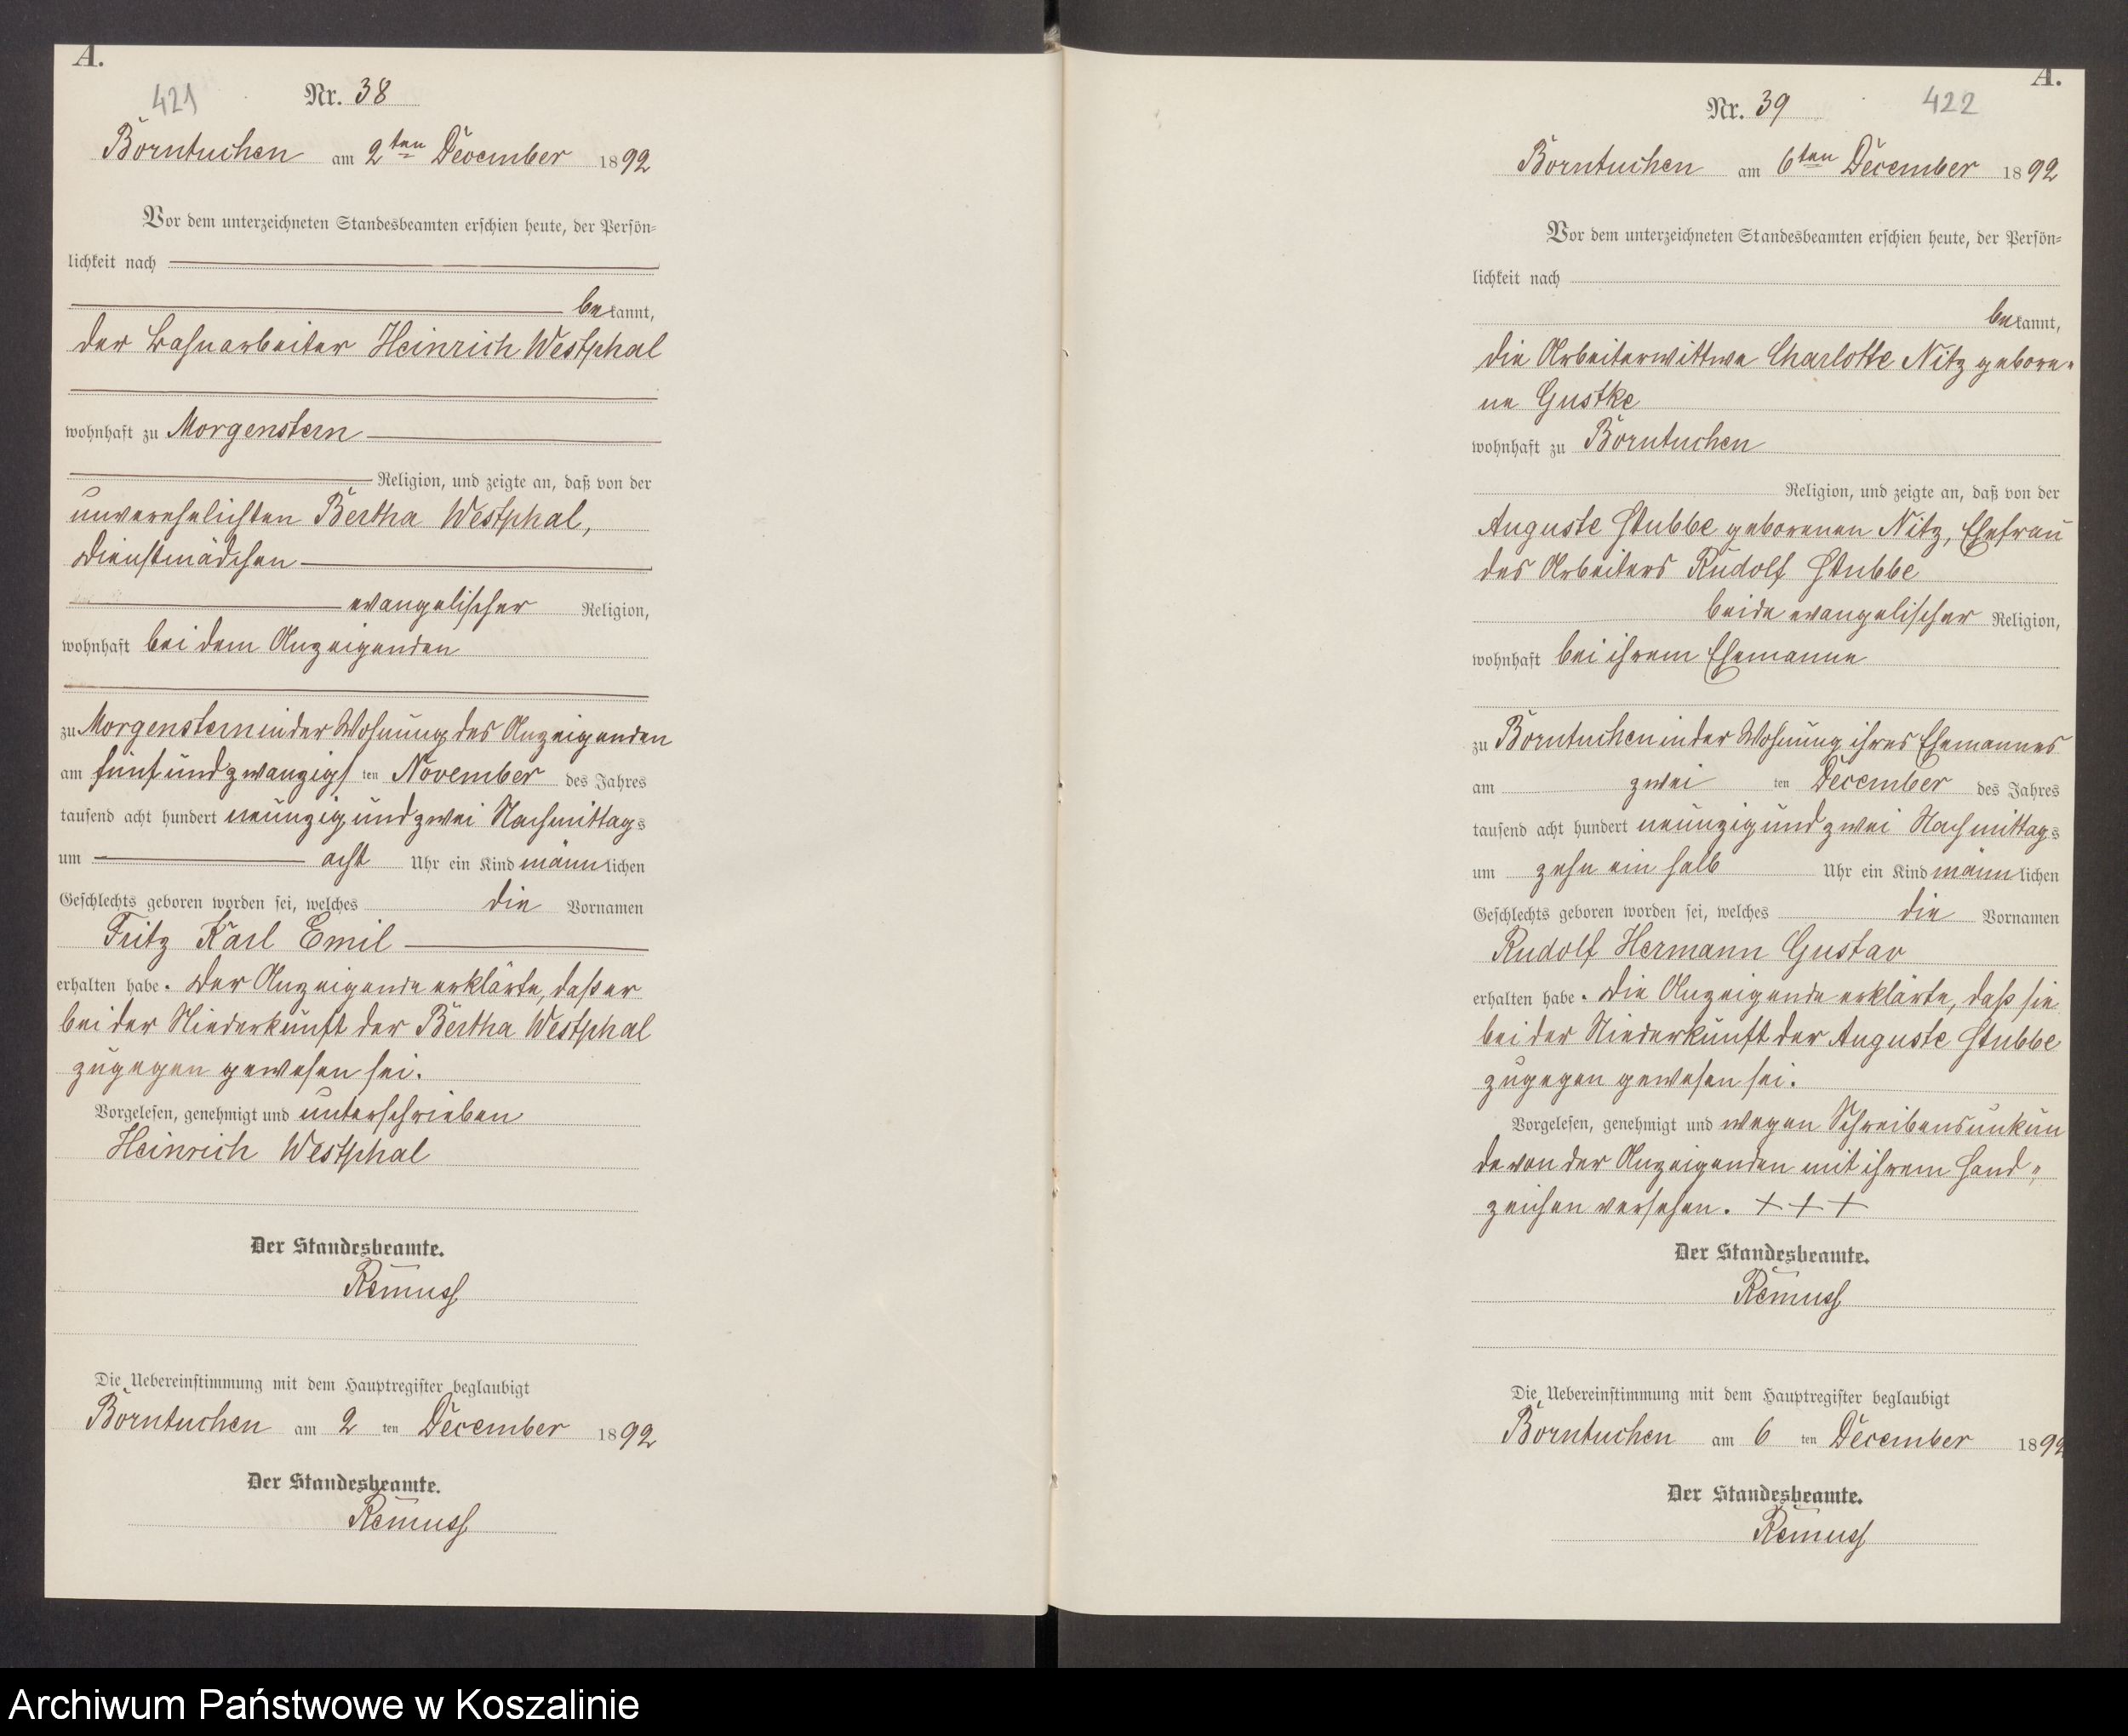 A.
421
Nr. 38
Borntuchen am 2ten December 1892
Vor dem unterzeichneten Standesbeamten erschien heute, der Persön-
lichkeit nach
bekannt,
der Bahnarbeiter Heinrich Westphal
wohnhaft zu Morgenstern
Religion, und zeigte an, daß von der
unverehelichten Bertha Westphal,
Dienstmädchen
evangelischer Religion,
wohnhaft bei dem Anzeigenden
zu Morgenstern in der Wohnung des Anzeigenden
am fünf und zwanzigsten November des Jahres
tausend acht hundert neunzig und zwei Nachmittags
um acht Uhr ein Kind männlichen
Geschlechts geboren worden sei, welches die Vornamen
Fritz Karl Emil
erhalten habe. Der Anzeigende erklärte, daß er
bei der Niederkunft der Bertha Westphal
zugegen gewesen sei.
Vorgelesen, genehmigt und unterschrieben
Heinrich Westphal
Der Standesbeamte.
Remuss
Die Uebereinstimmung mit dem Hauptregister beglaubigt
Borntuchen am 2 ten December 1892
Der Standesbeamte.
Remuss
A.
422
Nr. 39
Borntuchen am 6ten December 1892
Vor dem unterzeichneten Standesbeamten erschien heute, der Persön-
lichkeit nach
bekannt,
die Arbeiterwittwe Charlotte Nitz gebore-
ne Gustke
wohnhaft zu Borntuchen
Religion, und zeigte an, daß von der
Auguste Stubbe geborenen Nitz, Ehefrau
des Arbeiters Rudolf Stubbe
beide evangelischer Religion,
wohnhaft bei ihrem Ehemanne
zu Borntuchen in der Wohnung ihres Ehemannes
am zwei ten December des Jahres
tausend acht hundert neunzig und zwei Nachmittags
um zehn ein halb Uhr ein Kind männlichen
Geschlechts geboren worden sei, welches die Vornamen
Rudolf Hermann Gustav
erhalten habe. Die Anzeigende erklärte, daß sie
bei der Niederkunft der Auguste Stubbe
zugegen gewesen sei.
Vorgelesen, genehmigt und wegen Schreibensunkun
de von der Anzeigenden mit ihrem Hand-
zeichen versehen. + + +
Der Standesbeamte.
Remuss
Die Uebereinstimmung mit dem Hauptregister beglaubigt
Borntuchen am 6 ten December 1892
Der Standesbeamte.
Remuss
Archiwum Państwowe w Koszalinie